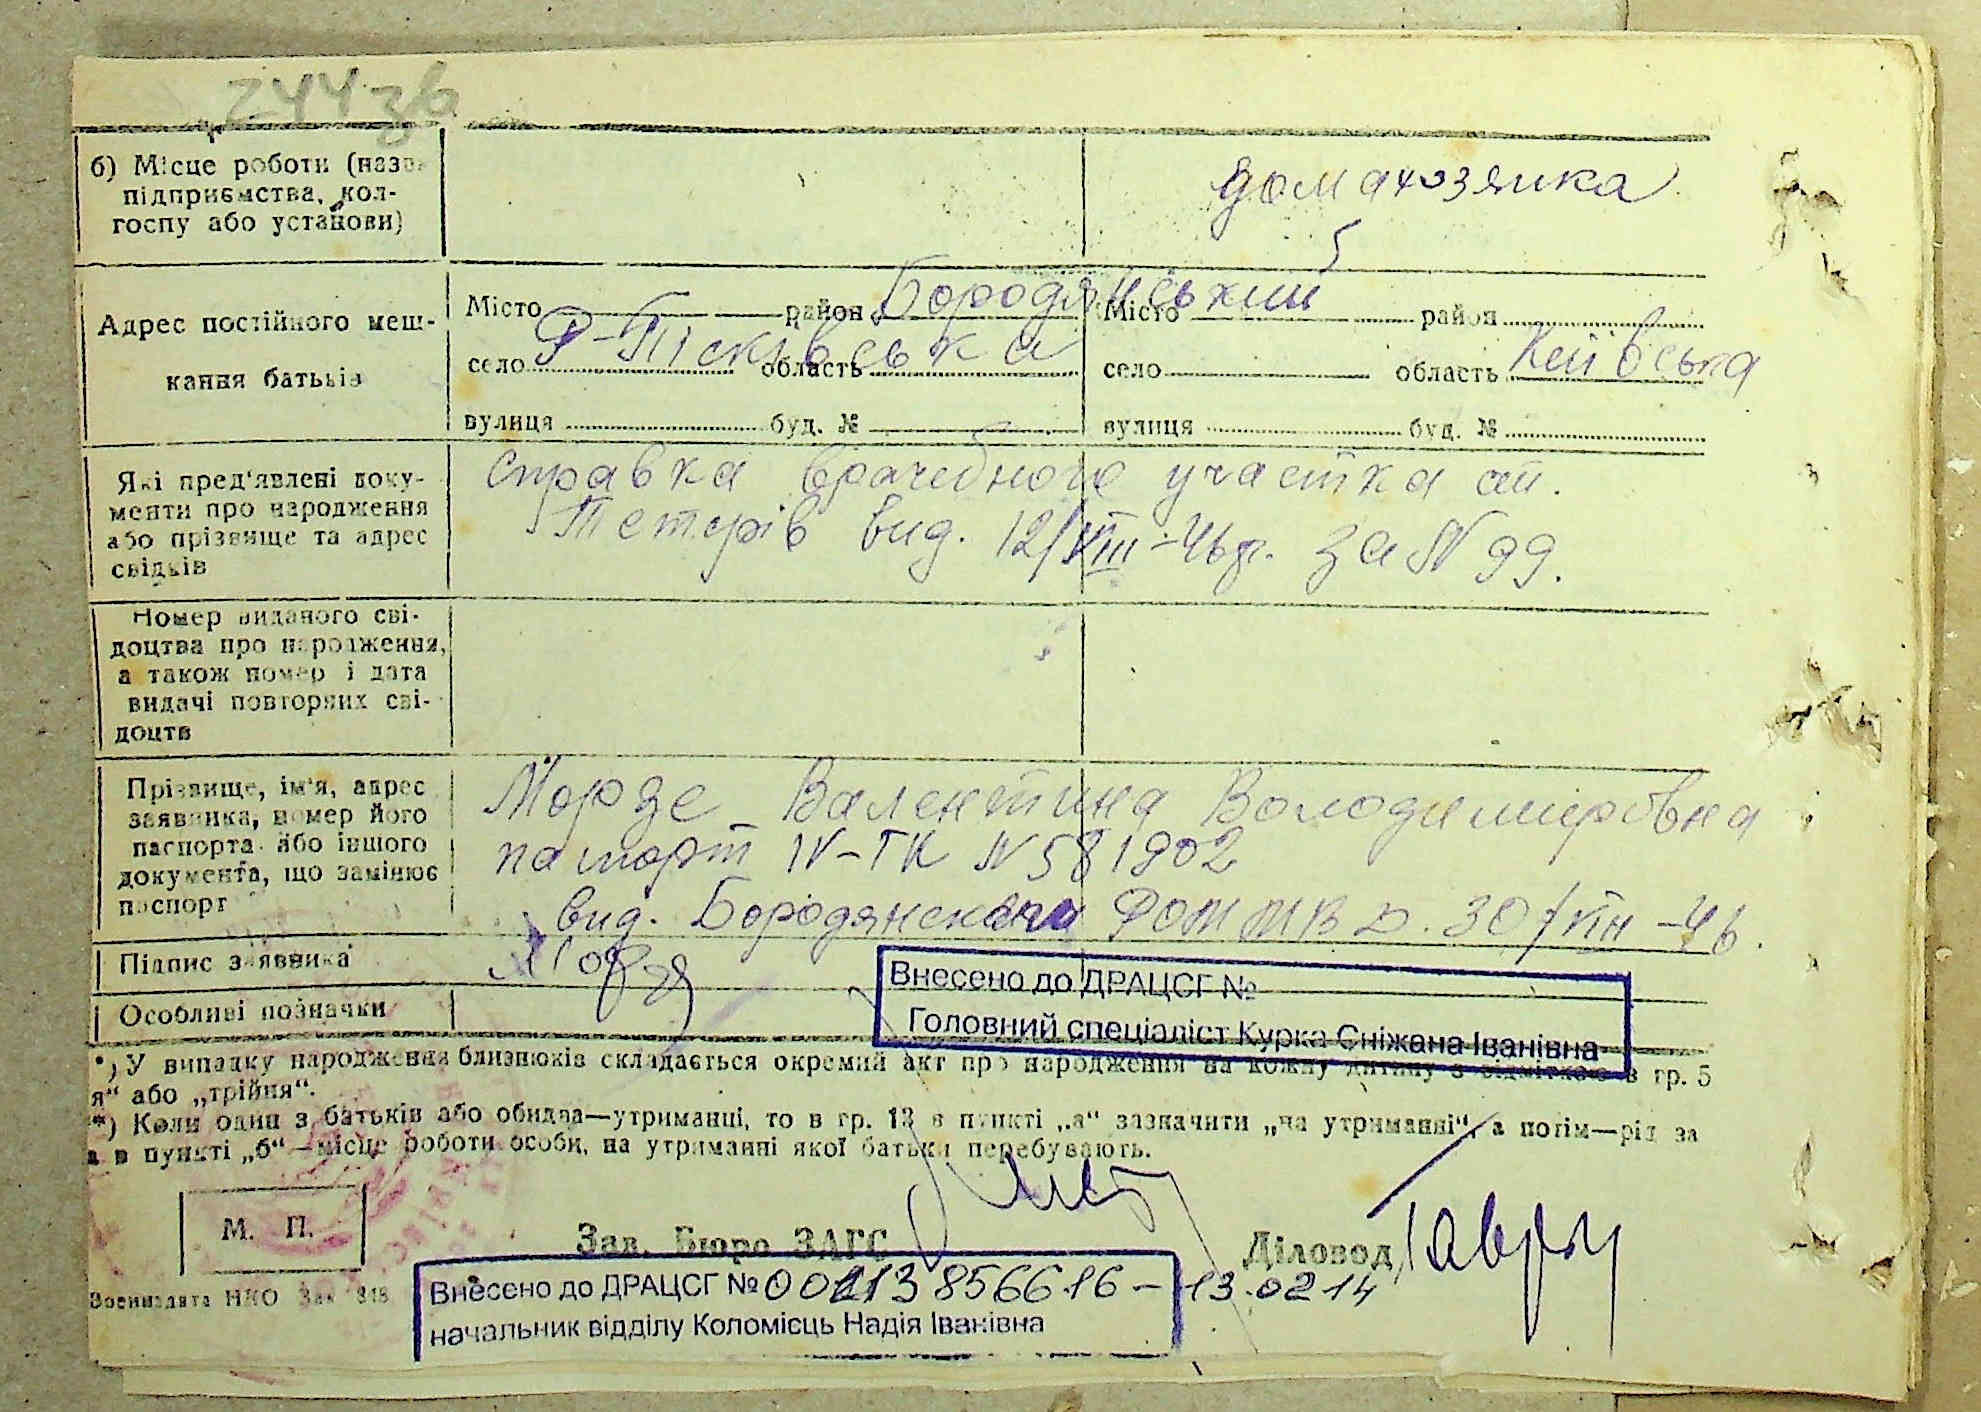 244зв
б) Місце роботи (назв
підприємства, кол-
госпу або установи)
домахозяйка
Адрес постійного меш-
кання батьків
Місто район Бородянський
село Р-Пісківська область
вулиця буд. №
Місто район
село область Київська
вулиця буд. №
Які пред'явлені доку-
менти про народження
або прізвище та адрес
свідків
Справка врачебного участка ст.
Тетерів вид. 12/VIII-46р. за N 99.
Номер виданого сві-
доцтва про народження,
а також номер і дата
видачі повторних сві-
доцтв
Прізвище, ім'я, адрес
заявника, номер його
паспорта або іншого
документа, що замінює
паспорт
Морзе Валентина Володимировна
паспорт IV-ГК N 581902
вид. Бородянским РОМ МВД. 30/VII -46.
Підпис заявника
Особливі позначки
Внесено до ДРАЦСГ №
Головний спеціаліст Курка Сніжана Іванівна
*) У випадку народження близнюків складається окремий акт про народження на кожну дитину з відміткою в гр. 5
я" або „трійня".
**) Коли один з батьків або обидва—утриманці, то в гр. 13 в пункті „а" зазначити „на утриманні", а потім—рід за
а в пункті „б"—місце роботи особи, на утриманні якої батьки перебувають.
М. П.
Зав. Бюро ЗАГС
Діловод
Воениздата НКО Зак 818
Внесено до ДРАЦСГ № 00113856616 - 13.02 14
начальник відділу Коломієць Надія Іванівна